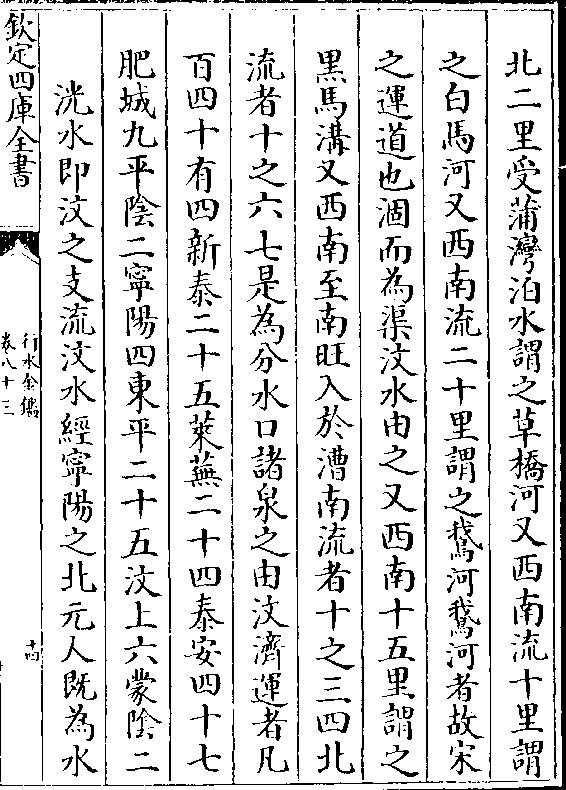 北二里受蒲灣泊水謂之草橋河又西南流十里謂
之白馬河又西南流二十里謂之鵞河鵞河者故宋
之運道也涸而為渠汶水由之又西南十五里謂之
黒馬溝又西南至南旺入於漕南流者十之三四北
流者十之六七是為分水口諸泉之由汶濟運者凡
百四十有四新泰二十五萊蕪二十四泰安四十七
肥城九平陰二寧陽四東平二十五汶上六蒙陰二
洸水即汶之支流汶水經寧陽之北元人既為水
欽定四庫全書
行水金鑑
卷八十三
十四